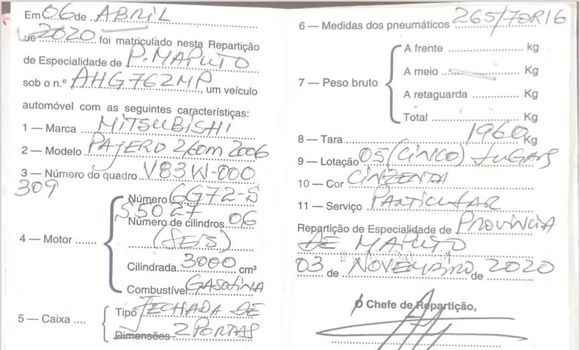 Em 06 de ABRIL
de 2020 foi matriculado nesta Repartição
de Especialidade de P. MAPUTO
sob o n.º AHG 762 MP, um veículo
automóvel com as seguintes características:
1 — Marca MITSUBISHI
2 — Modelo PAJERO 260m 2006
3 — Número do quadro V83W-000
309
4 — Motor
Número 6G72-S
S5027
Número de cilindros 06
(SEIS)
Cilindrada 3000 cm³
Combustível GASOLINA
5 — Caixa
Tipo FECHADA DE
Dimensões 2 PORTAS
6 — Medidas dos pneumáticos 265/70R16
7 — Peso bruto
A frente kg
A meio Kg
A retaguarda Kg
Total Kg
8 — Tara 1960 Kg
9 — Lotação 05 (CINCO) LUGARES
10 — Cor CINZENTA
11 — Serviço PARTICULAR
Repartição de Especialidade de PROVINCIA
DE MAPUTO
03 de NOVEMBRO de 2020
O Chefe de Repartição,